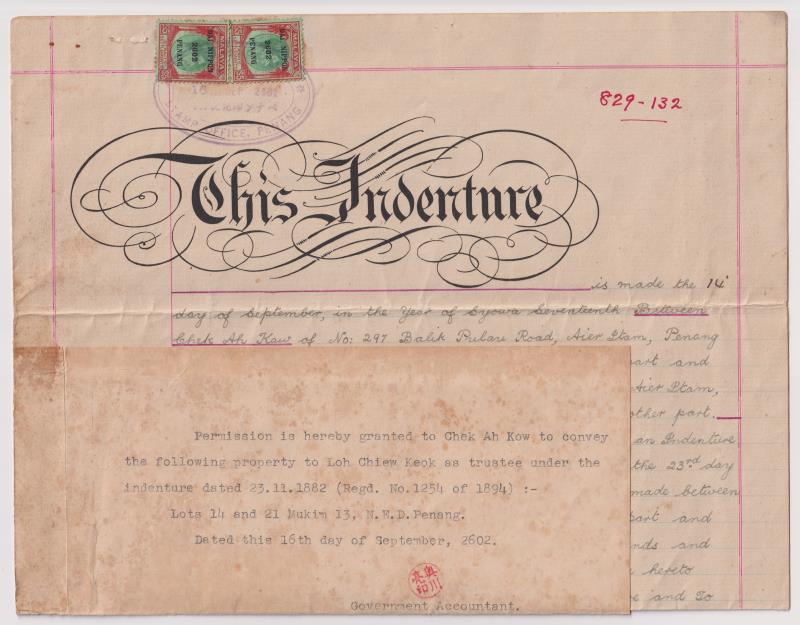 MALAYA MALAYA
DAI NIPPON 2602 PENANG DAI NIPPON 2602 PENANG
STAMP OFFICE, PENANG
829-132
This Indenture
is made the 14
day of September, in the Year of Syowa Seventeenth Between
Chek Ah Kaw of No: 297 Balik Pulau Road, Aier Itam, Penang
part and
Aier Itam,
other part.
an Indenture
the 23rd day
made between
part and
nds and
hereto
and To
Permission is hereby granted to Chek Ah Kow to convey
the following property to Loh Chiew Keok as trustee under the
indenture dated 23.11.1882 (Regd. No.1254 of 1894) :-
Lots 14 and 21 Mukim 13, N.E.D.Penang.
Dated this 16th day of September, 2602.
Government Accountant.